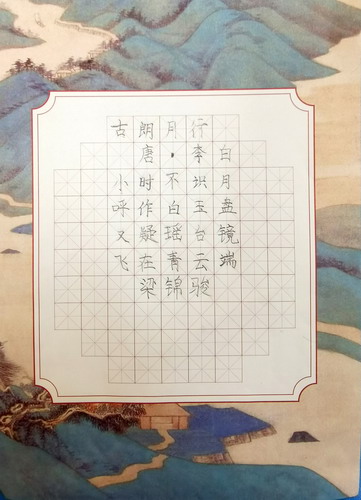 古朗月行
唐·李白
小时不识月
呼作白玉盘
又疑瑶台镜
飞在青云端
梁锦骏